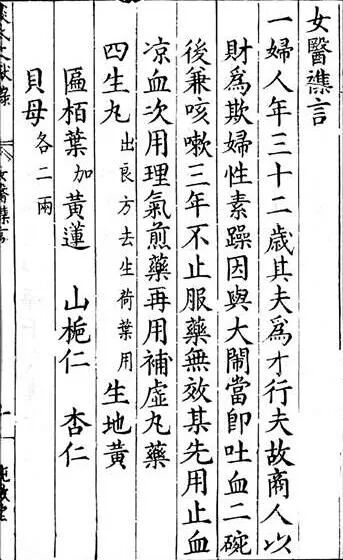 女醫襍言
一婦人年三十二歲其夫爲才行夫故商人以
財爲欺婦性素躁因與大鬧當卽吐血二碗
後兼咳嗽三年不止服藥無效某先用止血
凉血次用理氣煎藥再用補虛丸藥
四生丸出良方去生荷葉用生地黃
匾栢葉加黃蓮 山梔仁 杏仁
貝母各二兩
女醫襍言